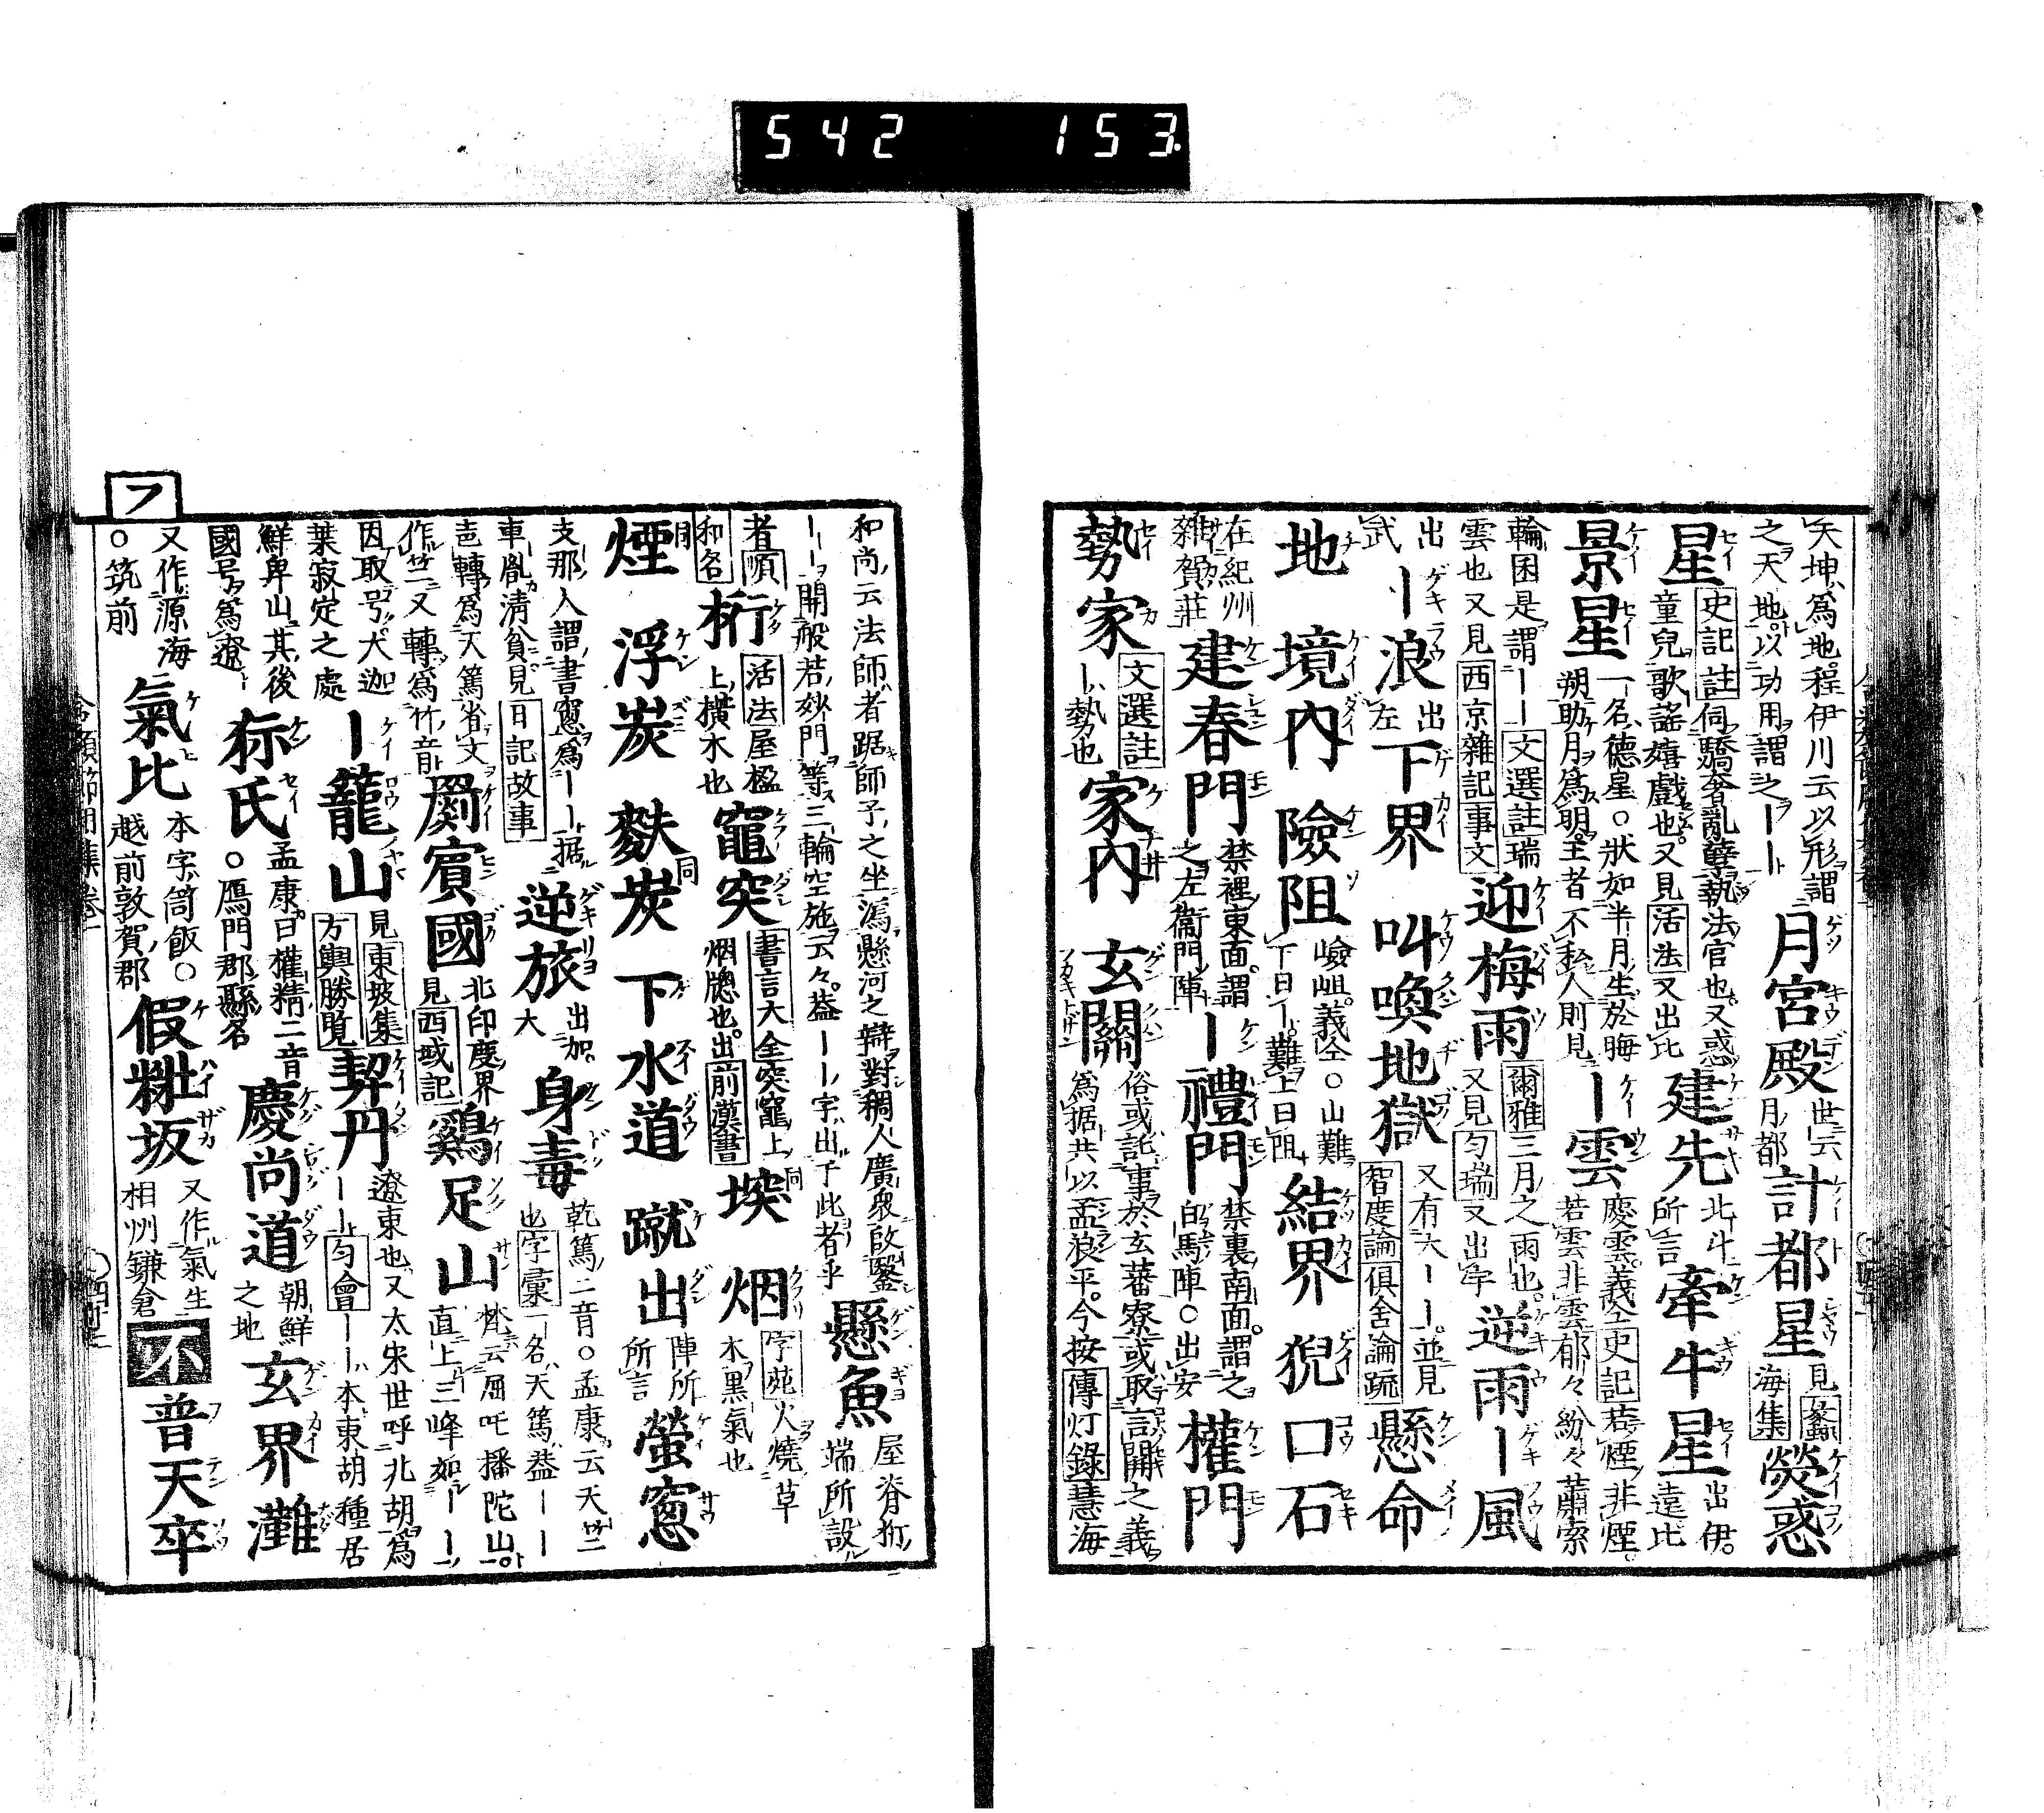 542 153.
天坤爲地程伊川云以形謂
之天地以功用謂之ーー
月宮殿
世云
月都
計都星
見翻
海集
熒惑
星
史記註伺驕奢亂孽執法官也又惑
童兒歌謠嬉戲也又見活法又出比
建先
北斗
所言
牽牛星
出伊
遠比
景星
一名德星○狀如半月生於晦
朔助月爲明王者不私人則見
ー雲
慶雲義仝史記若煙非煙
若雲非雲郁々紛々蕭索
輪囷是謂ーー文選註瑞
雲也又見西京雜記事文
迎梅雨
爾雅三月之雨也
又見匀瑞又出字
逆雨ー風
出
武
ー浪
出
左
下界
叫喚地獄
又有大ー並見
智度論俱舍論疏
懸命
地
境內
險阻
嶮岨義仝○山難
下曰ー難上曰阻
結界
猊口石
在紀州
雜賀莊
建春門
禁裡東面謂
之左衞門陣
ー禮門
禁裏南面謂之
白馬陣○出安
權門
勢家
文選註
ー勢也
家內
玄關
俗或託事於玄蕃寮或取言關之義
爲据共以孟浪乎今按傳灯錄慧海
和尚云法師者踞師子之坐瀉懸河之辯對稠人廣衆啟鑿
ーー開般若妙門等三輪空施云々蓋ーー字出于此者乎
懸魚
屋脊
端所設
者順
和名
桁
活法屋楹
上橫木也
竈突
書言大全突竈上
烟牕也出前漢書
堗
烟
字苑火燒草
木黑氣也
煙
浮炭
麩炭
下水道
蹴出
陣所
所言
螢窓
支那人謂書窓爲ーー据
車胤清貧見日記故事
逆旅
出加
大
身毒
乾篤二音○孟康云天竺
也字彙一名天篤蓋ーー
轉爲天篤省文
作竺又轉爲竹音
罽賓國
北印度界
見西域記
鷄足山
梵云屈吒播陀山
直上三峰如ーー
因取号大迦
葉寂定之處
ー籠山
見東坡集
方輿勝覧
契丹
遼東也又太宋世呼北胡爲
ーー匀會ーー本東胡種居
鮮卑山其後
國号爲遼
狋氏
孟康曰權精二音
○鴈門郡縣名
慶尚道
朝鮮
之地
玄界灘
又作源海
○筑前
氣比
本字笥飯○
越前敦賀郡
假粃坂
又作氣生
相州鎌倉
不
普天卒
フ